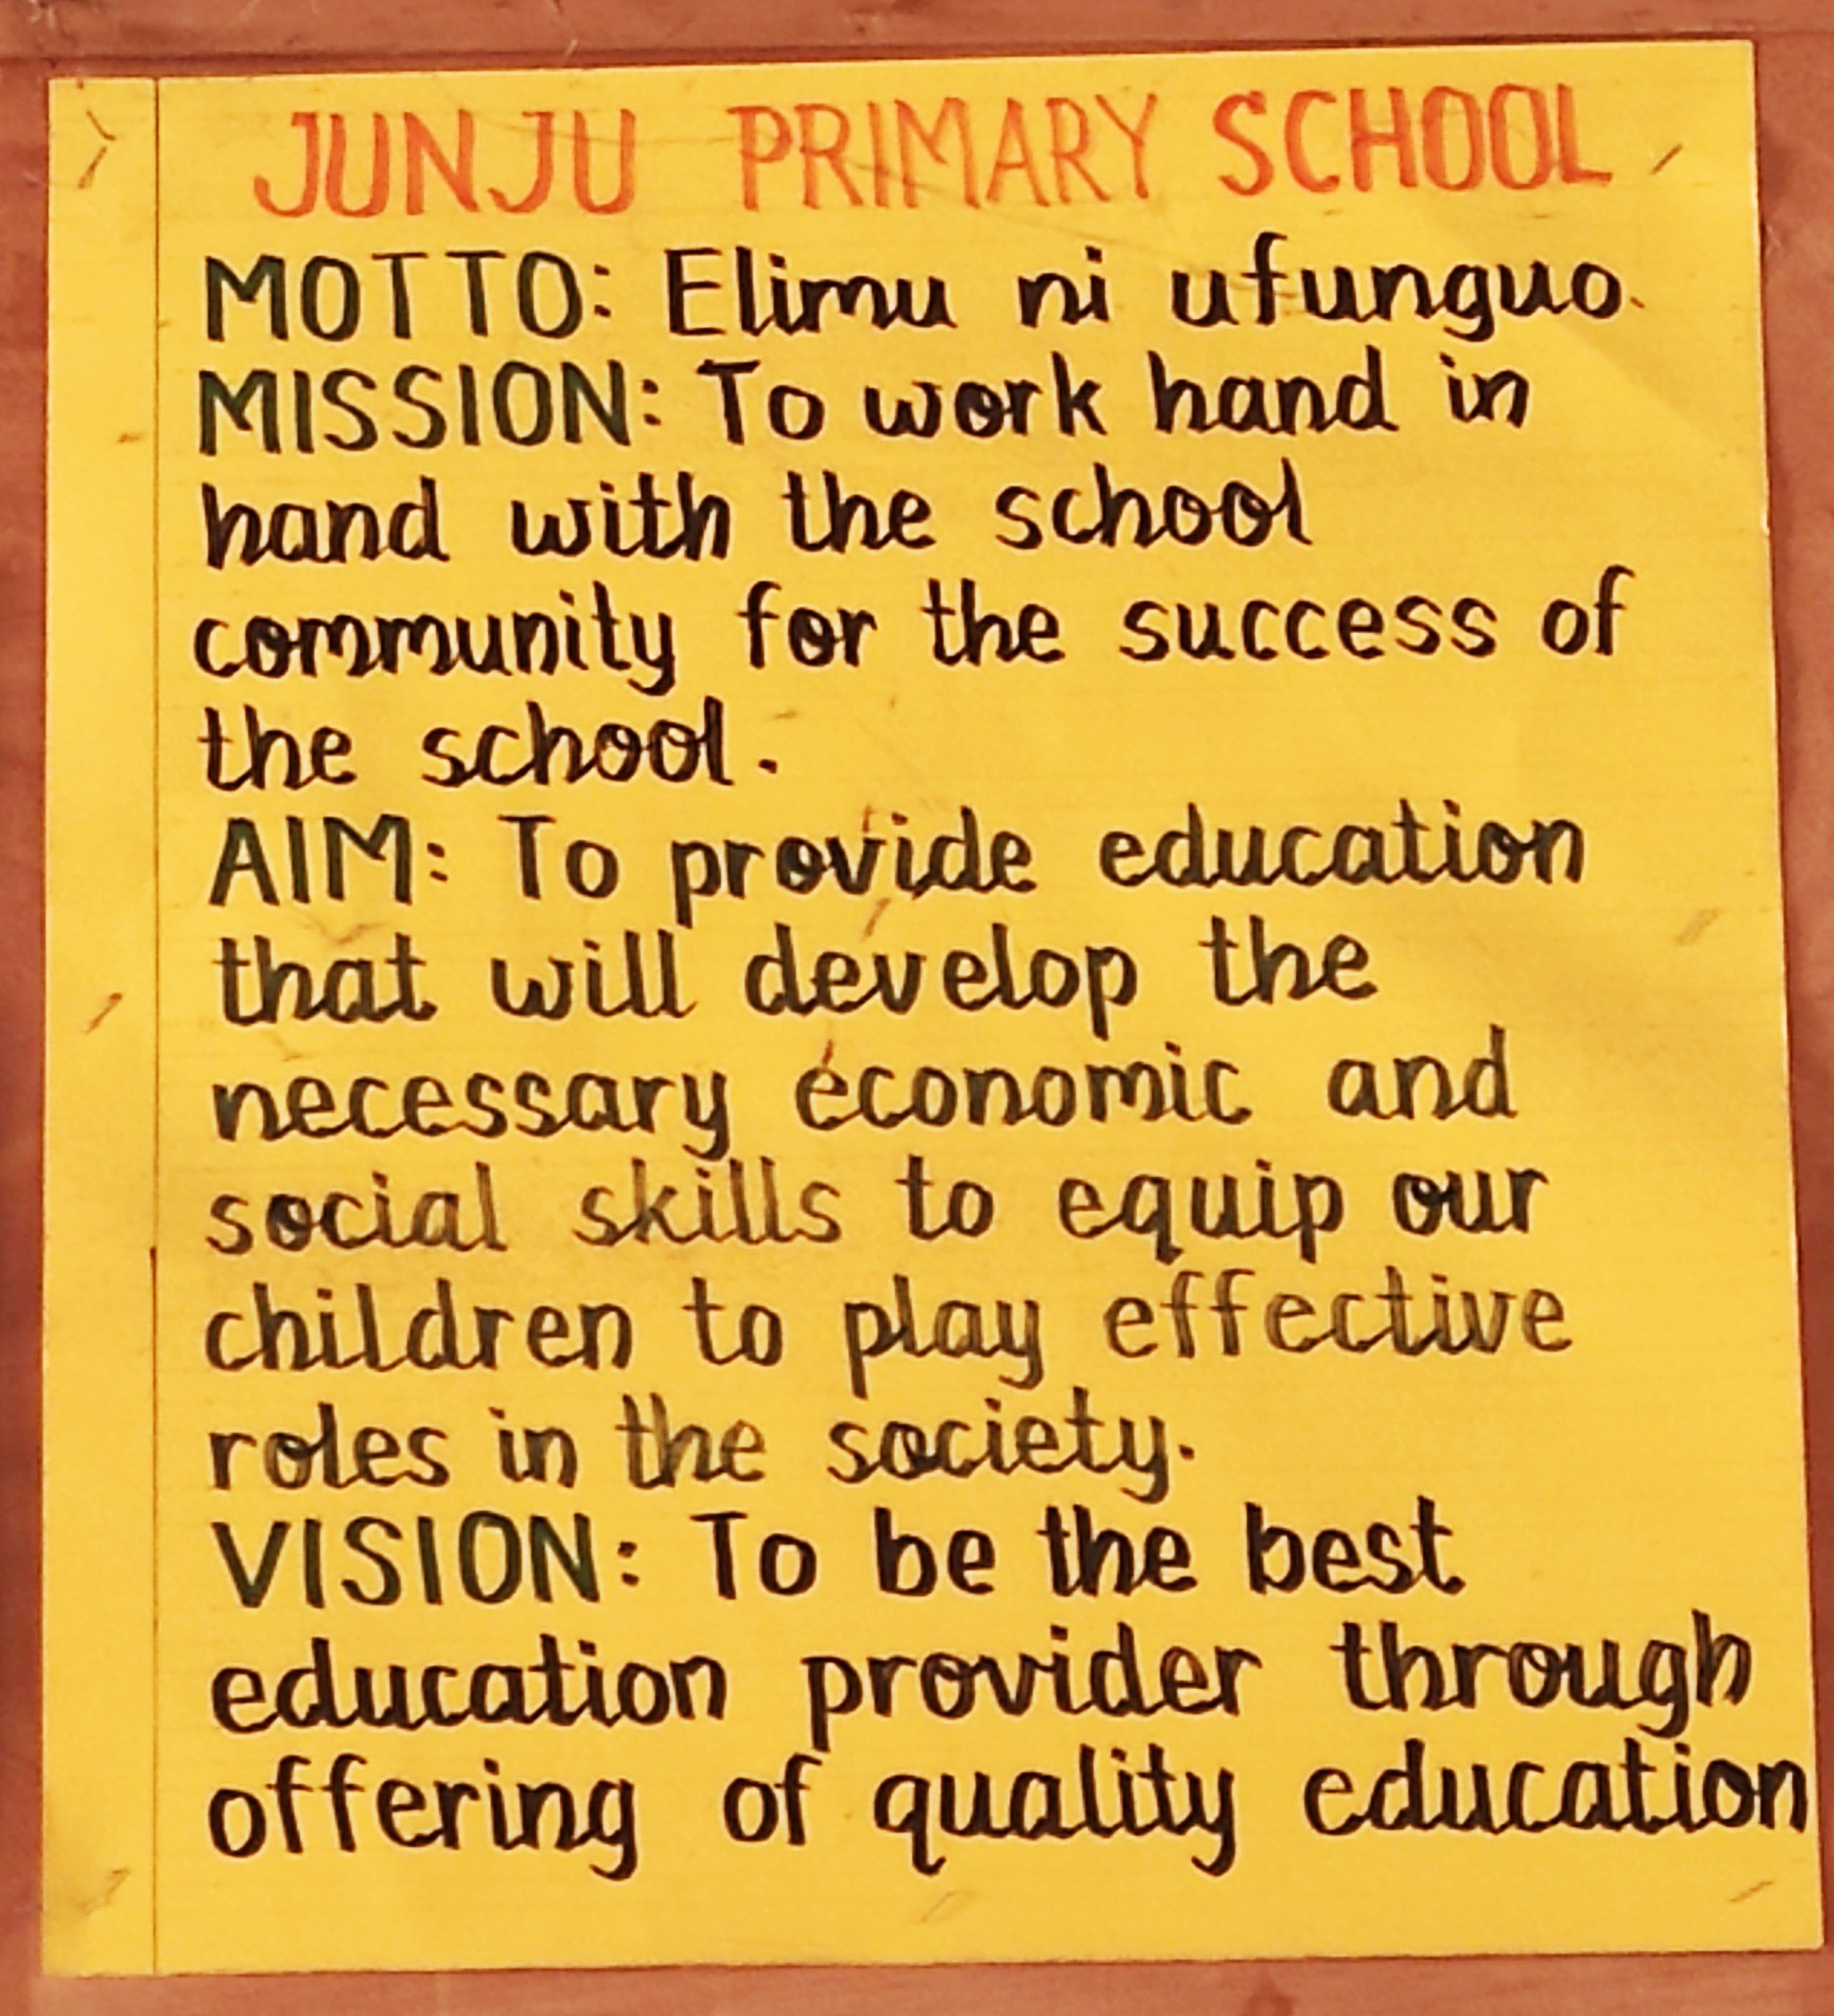 JUNJU PRIMARY SCHOOL
MOTTO: Elimu ni ufunguo.
MISSION: To work hand in
hand with the school
community for the success of
the school.
AIM: To provide education
that will develop the
necessary economic and
social skills to equip our
children to play effective
roles in the society.
VISION: To be the best
education provider through
offering of quality education